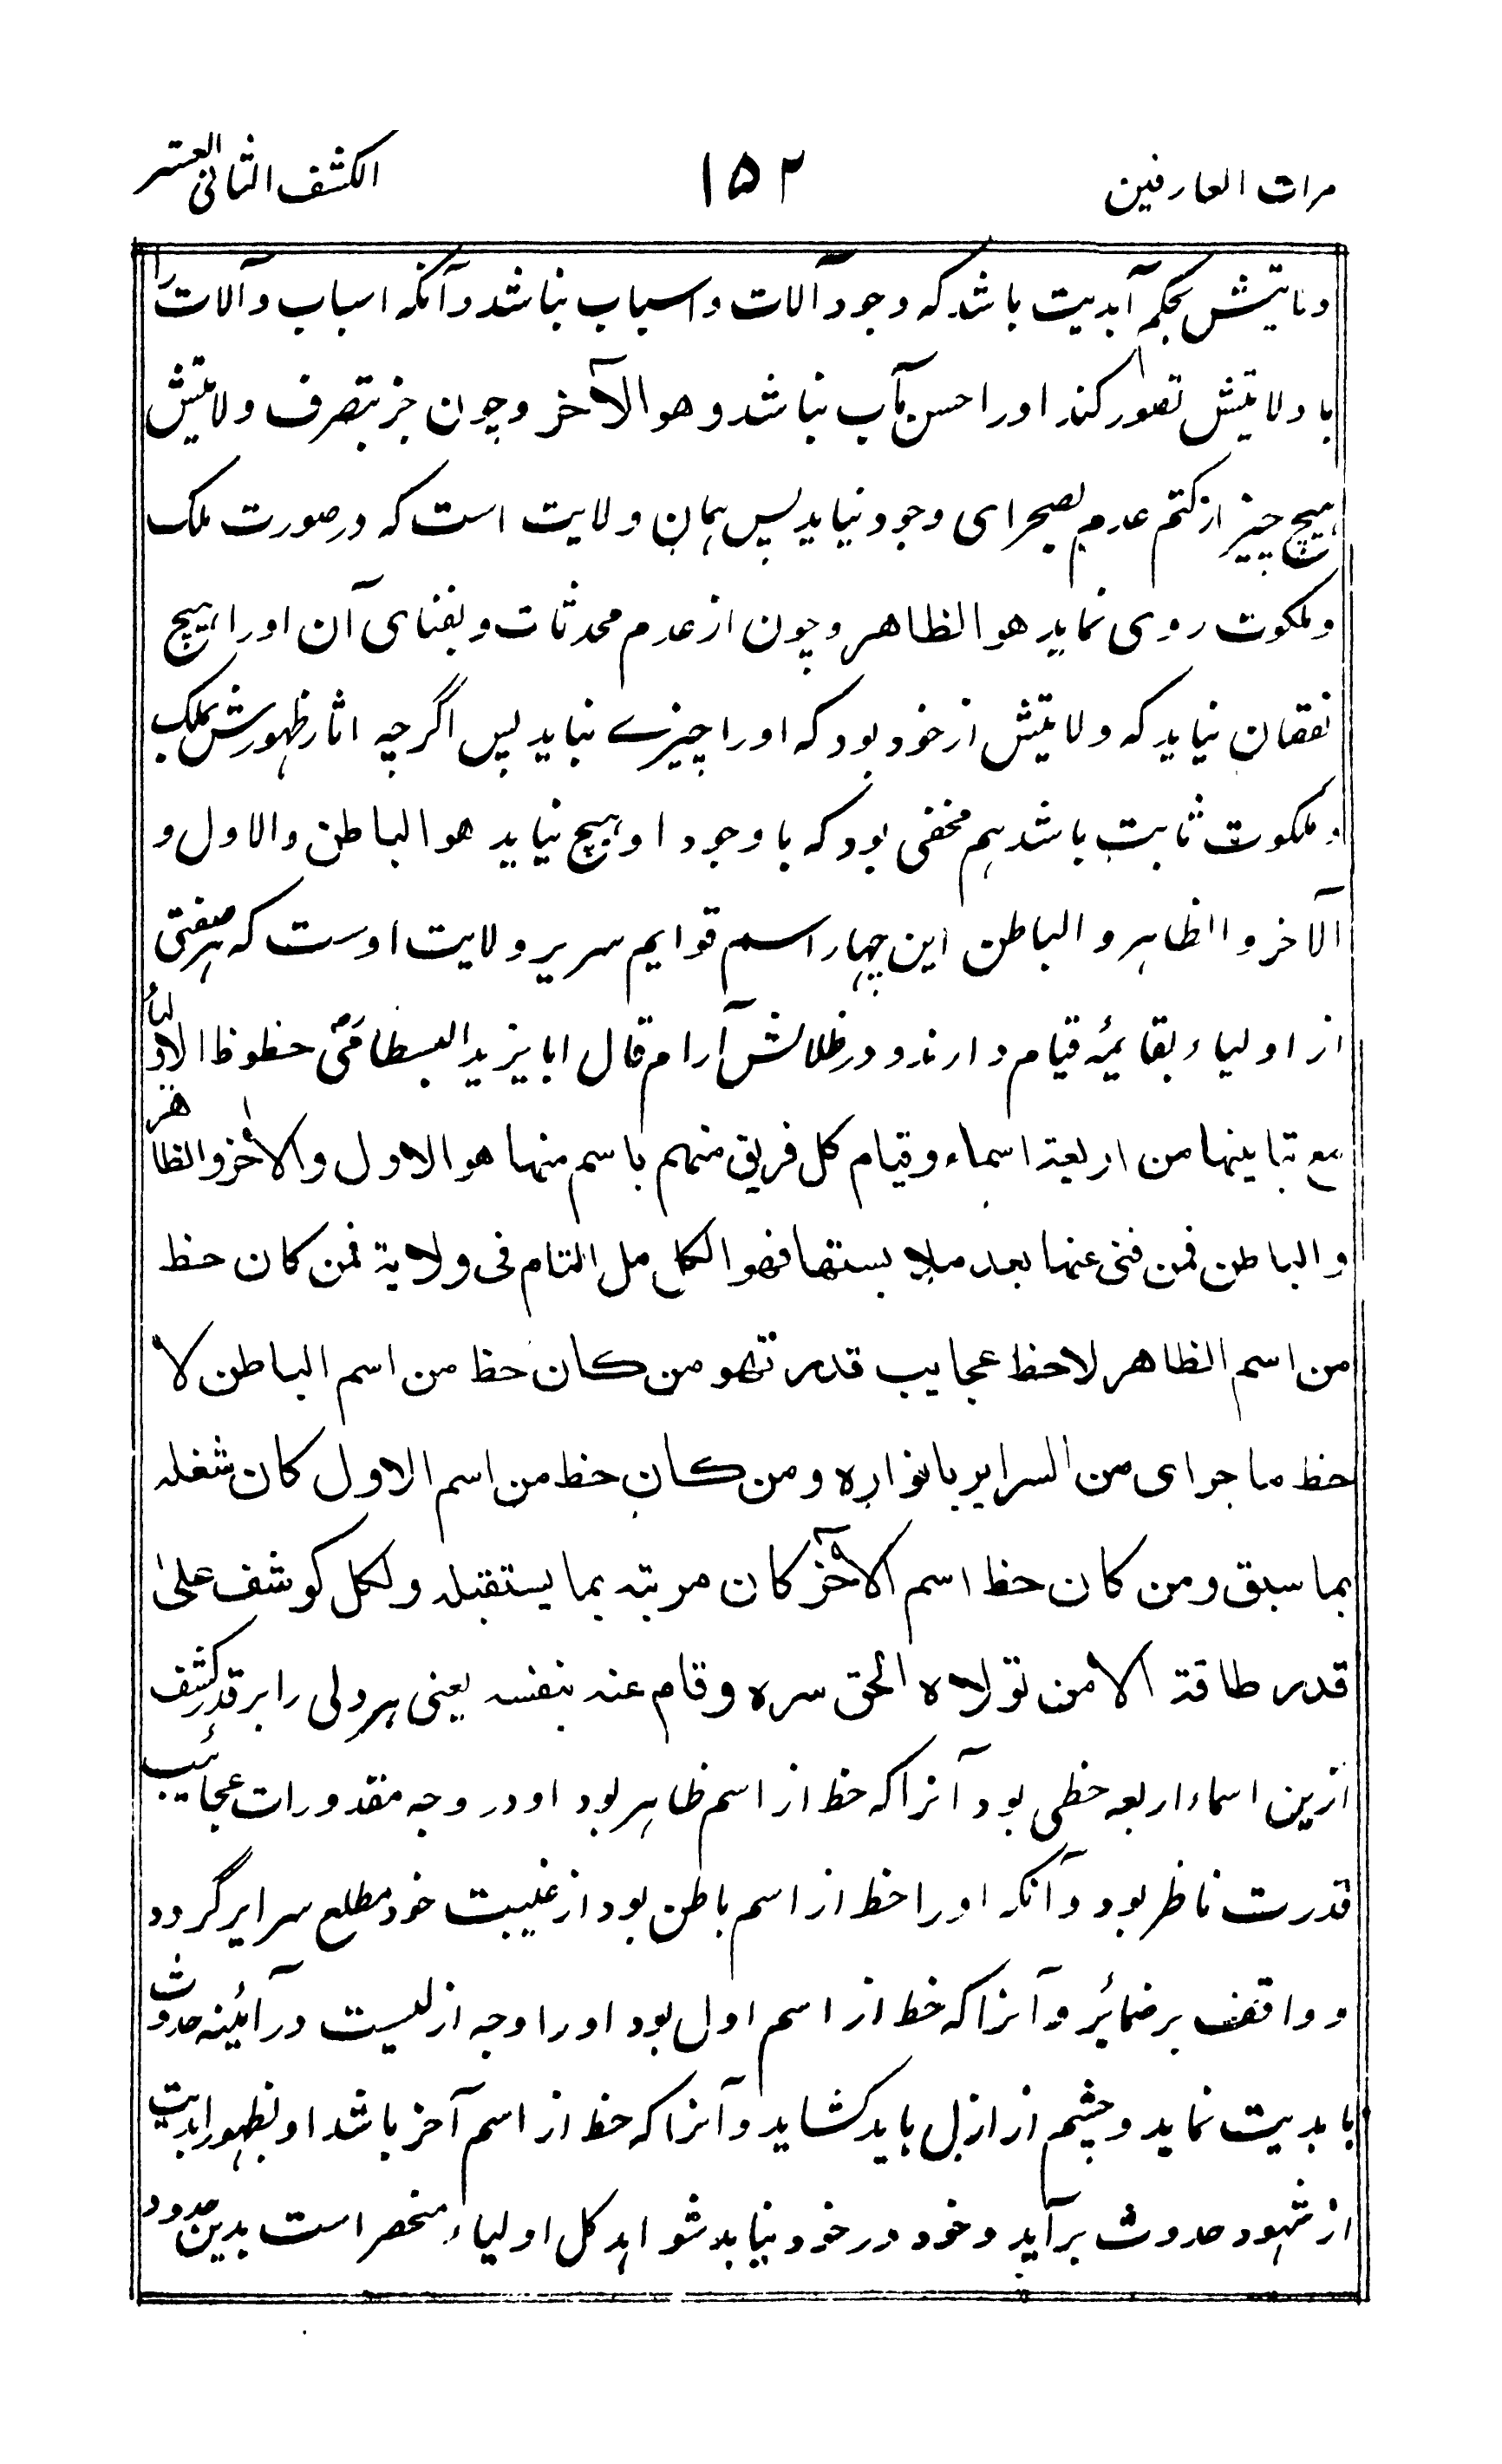 مرات العارفین ۱۵۲ الکشف الثانی العشر
ولایتش بحکم آبدیت باشد که وجود آلات و اسباب نباشد و آنکه اسباب و آلات را
با ولایتش تصور کند اورا حسن مآب نباشد و هو الآخر و چون جز بتصرف ولایتش
هیچ چیز از کتم عدم بصحرای وجود نیاید پس همان ولایت است که در صورت ملک
و ملکوت روی نماید هو الظاهر و چون از عدم محدثات و بفنای آن اورا هیچ
نقصان نیاید که ولایتش از خود بود که اورا چیزے نباید پس اگرچه اثار ظهورش بملک
و ملکوت ثابت باشد هم مخفی بود که باوجود او هیچ نیاید هو الباطن والاول و
الآخر و الظاهر و الباطن این چهار اسم قوایم سریر ولایت اوست که هر صفتی
از اولیاء بقایمۂ قیام دارند و در ظلالش آرام قال ابا یزید البسطامیؒ حظوظ الاولیاء
مع تباینها من اربعة اسماء و قیام کل فریق منهم باسم منها هو الاول والاخر والظاهر
والباطن فمن فنی عنها بعد ملابستها فهو الکامل التام فی ولایة فمن کان حظ
من اسم الظاهر لاحظ عجایب قدرته و من کان حظ من اسم الباطن لا
حظ ما جرای من السرایر بانواره و من کان حظ من اسم الاول کان شغله
بما سبق و من کان حظ اسم الآخر کان مرتبه بما یستقبله و لکل کوشف علیٰ
قدر طاقة الا من تولاه الحق سره و قام عنه بنفسه یعنی هر ولی را بر قدر کشف
ازین اسماء اربعه حظی بود آنرا که حظ از اسم ظاهر بود او در وجه مقدورات عجائب
قدرت ناظر بود و آنکه اورا حظ از اسم باطن بود از غیبت خود مطلع سرایر گردد
و واقف بر ضمائر و آنرا که حظ از اسم اول بود اورا وجه ازلیست در آئینه حدوث
بابدیت نماید و چشم از ازل باید کشاید و آنرا که حظ از اسم آخر باشد او بظهور ابدیت
از شهود حدوث برآید و خود در خود نیابد شواهد کل اولیاء منحصر است بدین حدود